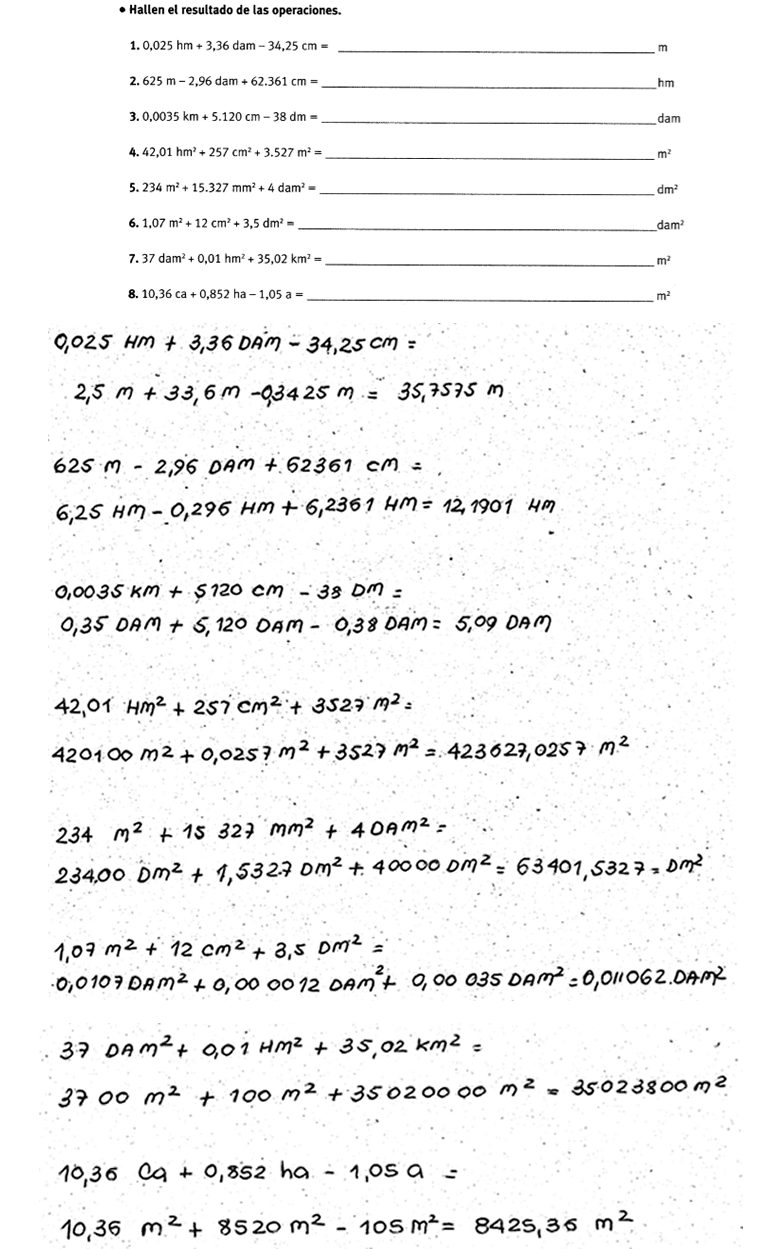 • Hallen el resultado de las operaciones.
1. 0,025 hm + 3,36 dam – 34,25 cm = ____ m
2. 625 m – 2,96 dam + 62.361 cm = ____ hm
3. 0,0035 km + 5.120 cm – 38 dm = ____ dam
4. 42,01 hm² + 257 cm² + 3.527 m² = ____ m²
5. 234 m² + 15.327 mm² + 4 dam² = ____ dm²
6. 1,07 m² + 12 cm² + 3,5 dm² = ____ dam²
7. 37 dam² + 0,01 hm² + 35,02 km² = ____ m²
8. 10,36 ca + 0,852 ha – 1,05 a = ____ m²
0,025 Hm + 3,36 DAM - 34,25 cm =
2,5 m + 33,6 m - 0,3425 m = 35,7575 m
625 m - 2,96 DAM + 62361 cm =
6,25 Hm - 0,296 Hm + 6,2361 Hm = 12,1901 Hm
0,0035 Km + 5120 cm - 38 Dm =
0,35 DAM + 5,120 DAM - 0,38 DAM = 5,09 DAM
42,01 Hm² + 257 cm² + 3527 m² =
420100 m² + 0,0257 m² + 3527 m² = 423627,0257 m²
234 m² + 15 327 mm² + 4 DAm² =
23400 Dm² + 1,5327 Dm² + 40000 Dm² = 63401,5327 = Dm²
1,07 m² + 12 cm² + 3,5 Dm² =
0,0107 DAm² + 0,00 0012 DAm² + 0,00 035 DAm² = 0,011062 DAm²
37 DAm² + 0,01 Hm² + 35,02 Km² =
3700 m² + 100 m² + 35020000 m² = 35023800 m²
10,36 Ca + 0,852 ha - 1,05 a =
10,36 m² + 8520 m² - 105 m² = 8425,36 m²